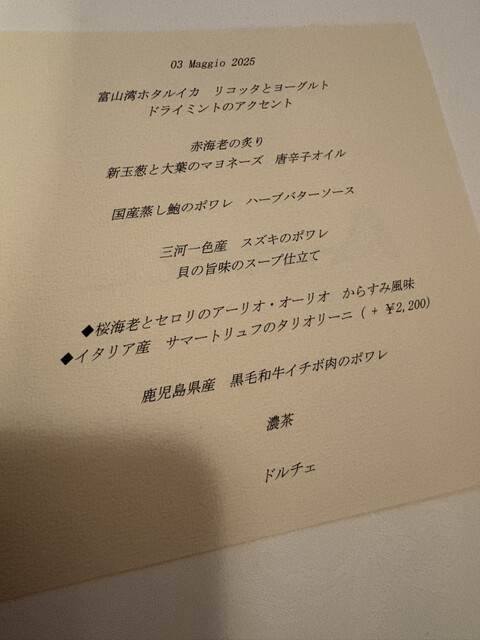 03 Maggio 2025
富山湾ホタルイカ　リコッタとヨーグルト
ドライミントのアクセント
赤海老の炙り
新玉葱と大葉のマヨネーズ　唐辛子オイル
国産蒸し鮑のポワレ　ハーブバターソース
三河一色産　スズキのポワレ
貝の旨味のスープ仕立て
◆桜海老とセロリのアーリオ・オーリオ　からすみ風味
◆イタリア産　サマートリュフのタリオリーニ ( + ¥2,200)
鹿児島県産　黒毛和牛イチボ肉のポワレ
濃茶
ドルチェ